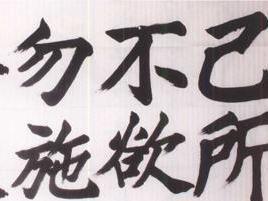 己所
不欲
勿施